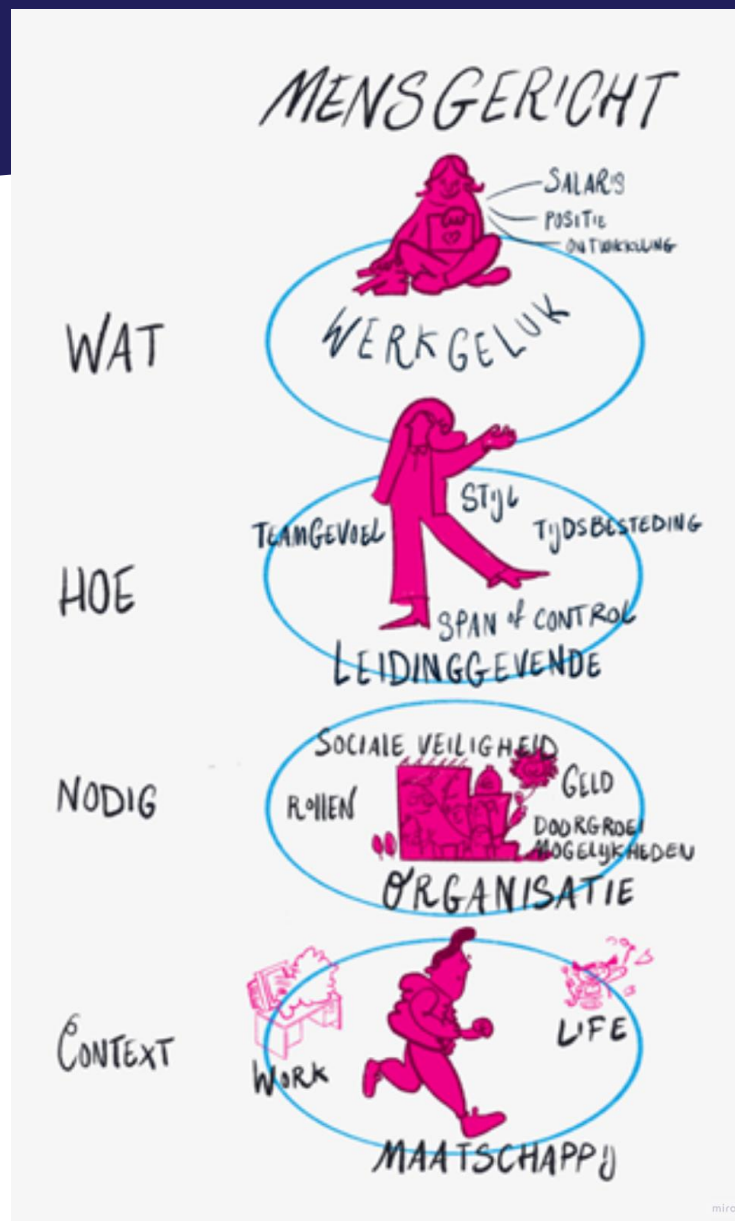 MENSGERICHT
SALARIS
POSITIE
ONTWIKKELING
WAT
WERKGELUK
TEAMGEVOEL
STIJL
TIJDSBESTEDING
HOE
SPAN of CONTROL
LEIDINGGEVENDE
SOCIALE VEILIGHEID
NODIG
ROLLEN
GELD
DOORGROEI
MOGELIJKHEDEN
ORGANISATIE
CONTEXT
WORK
LIFE
MAATSCHAPPIJ